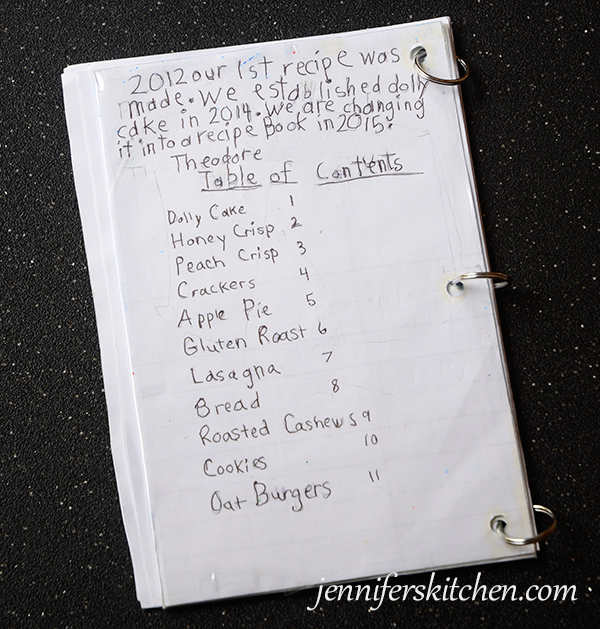 2012 our 1st recipe was
made. We established dolly
cake in 2014. We are changing
it into a recipe book in 2015.
Theodore
Table of Contents
Dolly Cake 1
Honey Crisp 2
Peach Crisp 3
Crackers 4
Apple Pie 5
Gluten Roast 6
Lasagna 7
Bread 8
Roasted Cashews 9
Cookies 10
Oat Burgers 11
jenniferskitchen.com